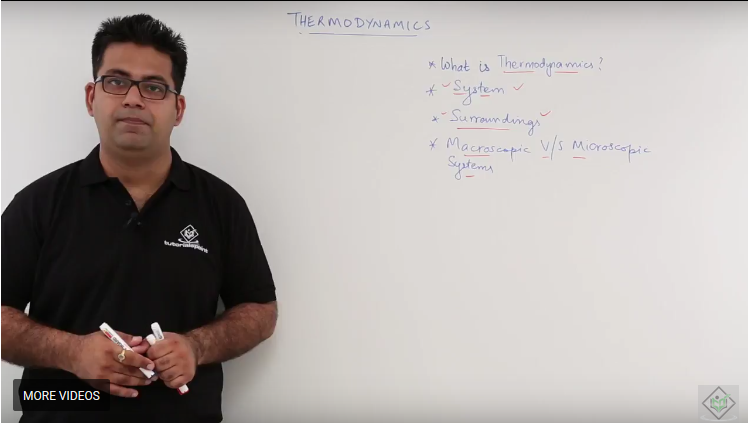 THERMODYNAMICS
* What is Thermodynamics?
* System
* Surroundings
* Macroscopic V/S Microscopic
Systems
tutorialspoint
MORE VIDEOS